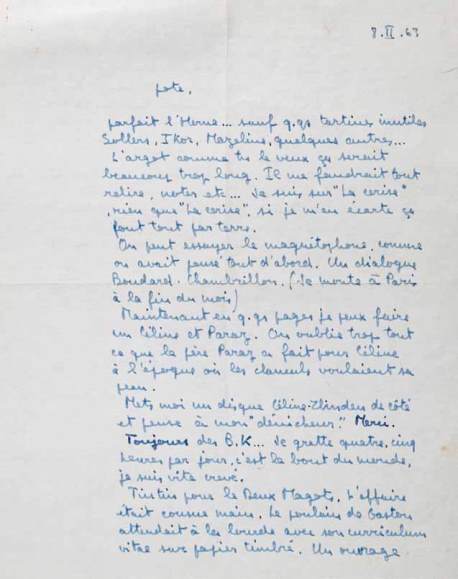 8.II.63
pote,
parfait l'Herne... sauf q.qs tartines inutiles
Sollers, Ikor, Mazeline, quelques autres...
L'argot comme tu le veux ça serait
beaucoup trop long. Il me faudrait tout
relire, notes etc... Je suis sur "La cerise"
, rien que "La cerise", si je m'en écarte ça
fout tout par terre.
On peut essayer le magnétophone, comme
on avait pensé tout d'abord. Un dialogue
Boudard-Chambrillon. (Je monte à Paris
à la fin du mois)
Maintenant en q.qs pages je peux faire
un Céline et Paraz. On oublie trop tout
ce que le père Paraz a fait pour Céline
à l'époque où les clamecés voulaient sa
peau.
Mets moi un disque Céline-Zlinsden de côté
et pense à mon "dénicheur". Merci.
Toujours des B.K... Je gratte quatre, cinq
heures par jour, c'est le bout du monde,
je suis vite crevé.
Tintin pour le Deux Magots. L'affaire
était cousue mains. Le poulain de Gaston
attendait à la lourde avec son curriculum
vitae sur papier timbré. Un ouvrage